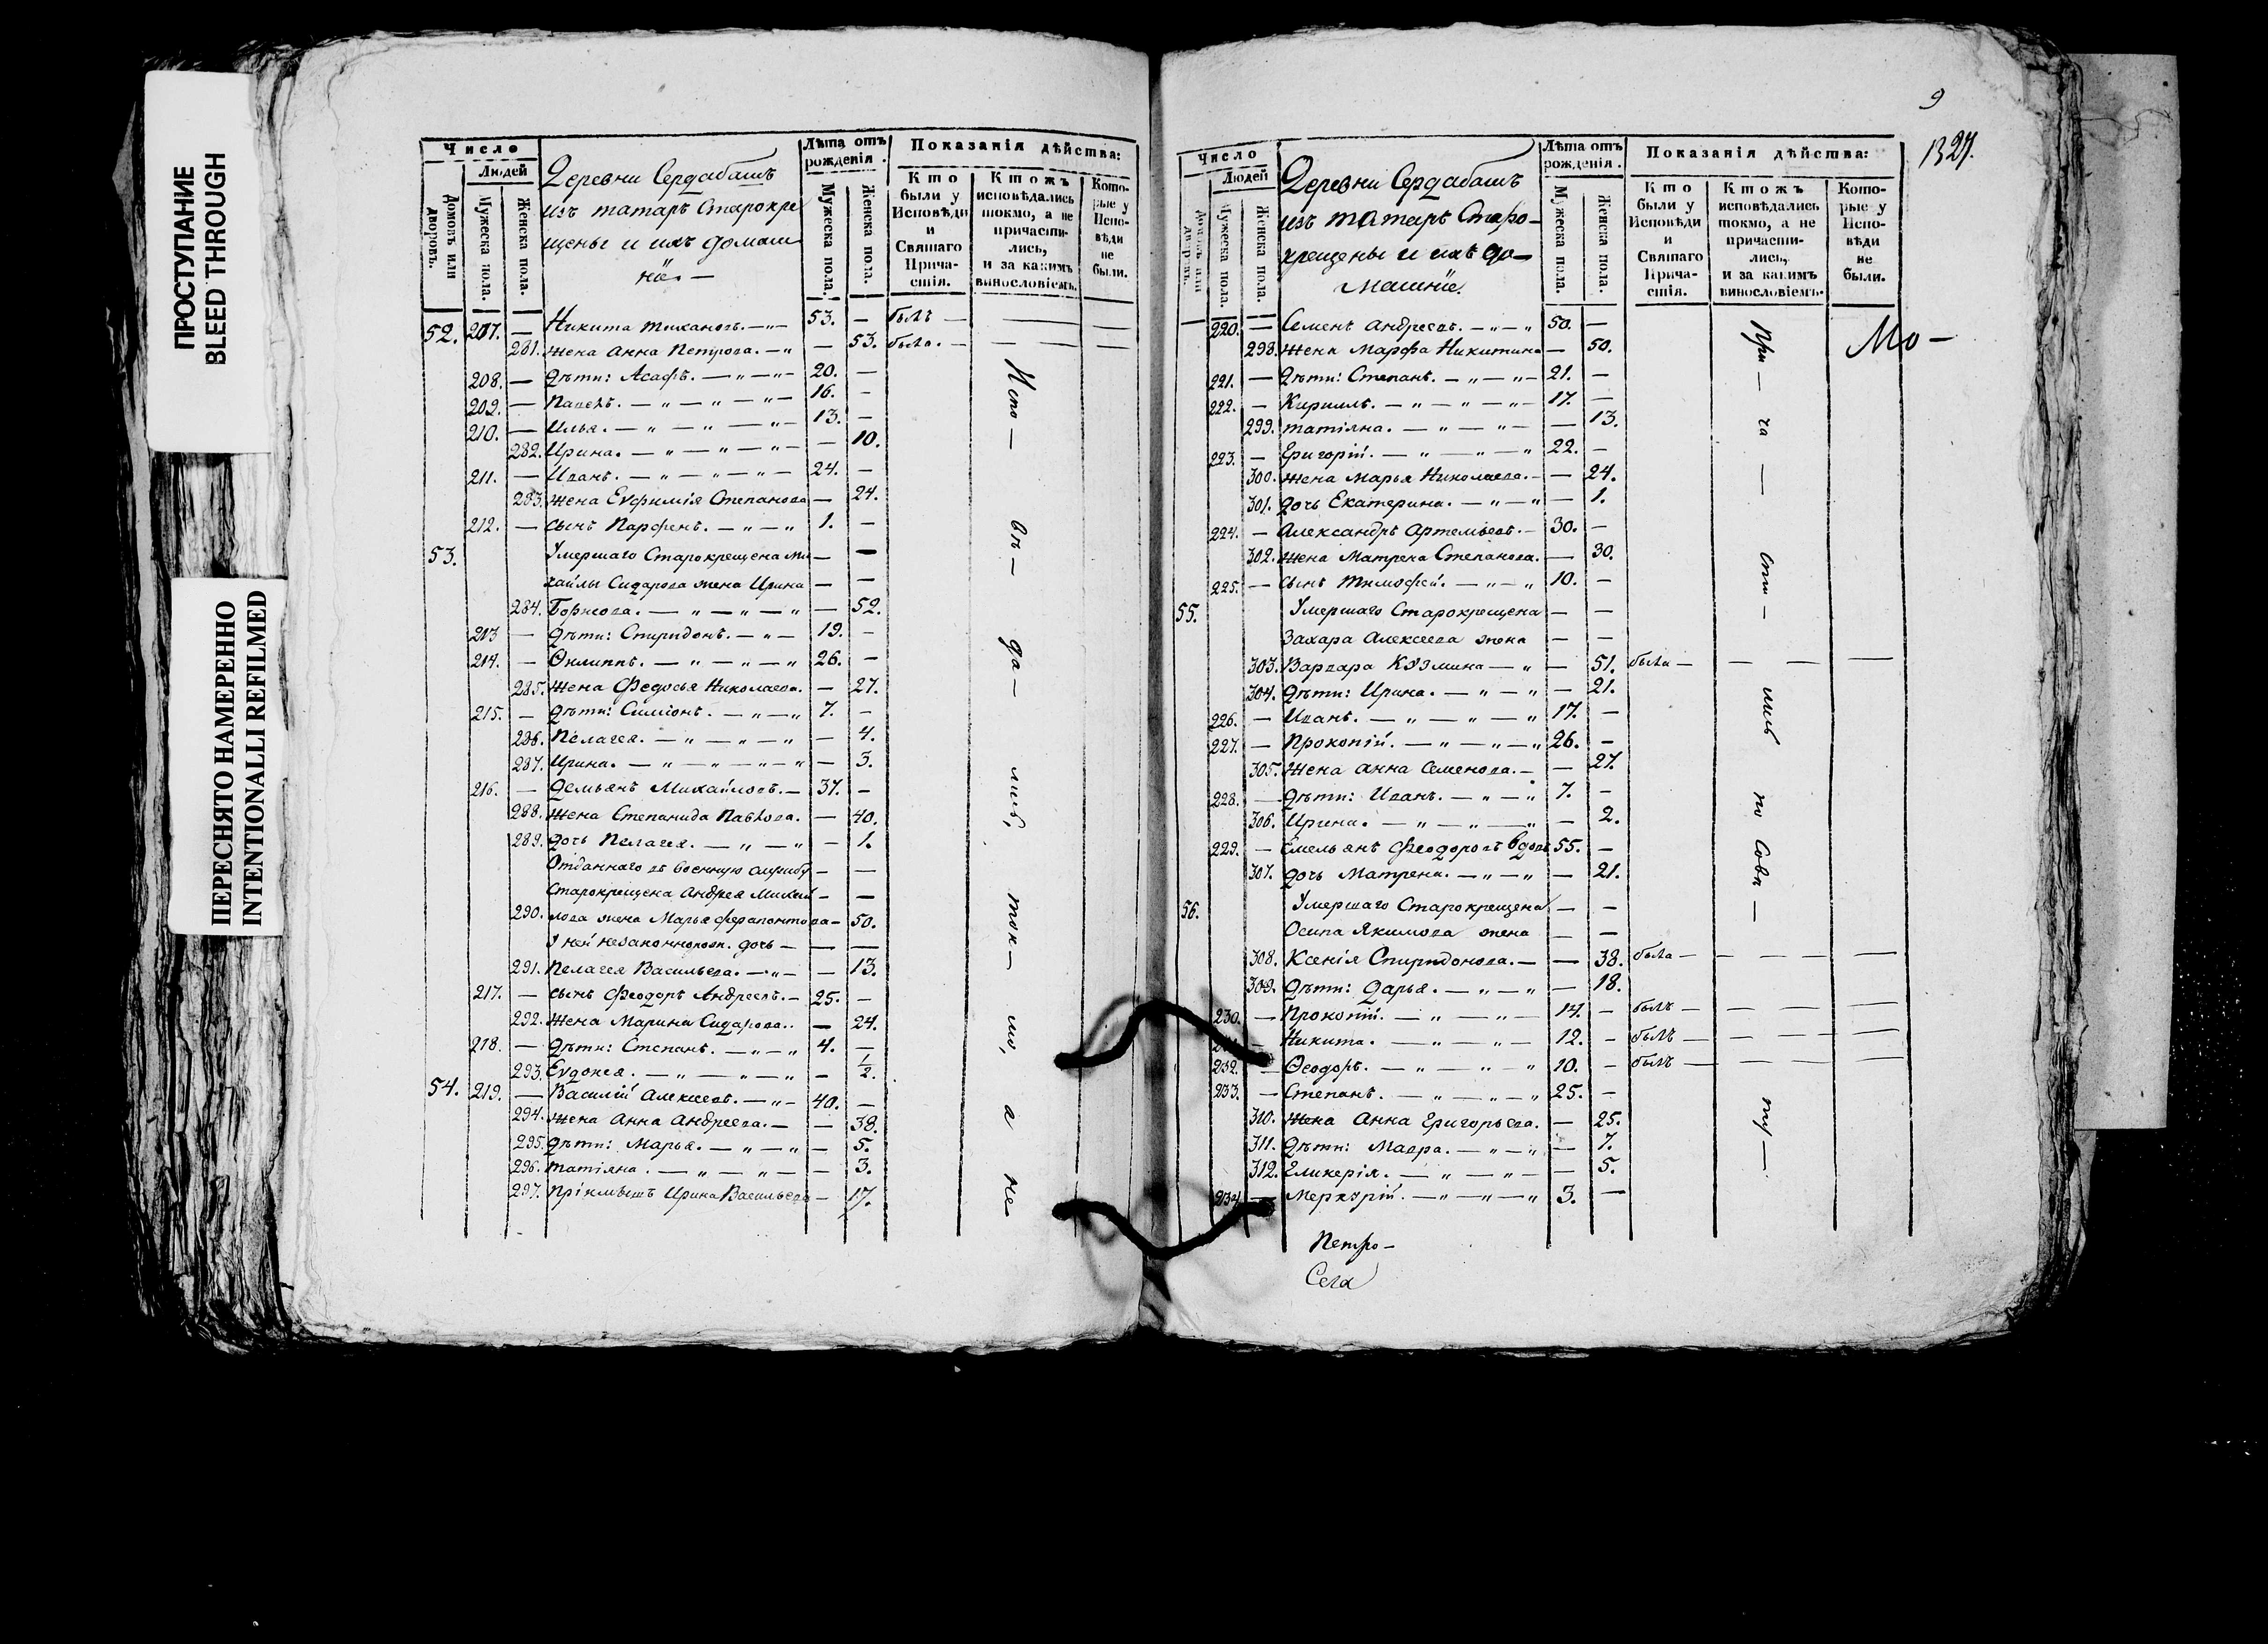 ПРОСТУПАНИЕ
BLEED THROUGH
ПЕРЕСНЯТО НАМЕРЕННО
INTENTIONALLI REFILMED
Число
Людей
Домовъ или дворовъ.
Мужеска пола.
Женска пола.
Деревни Сердабашъ
изъ татаръ Старокре
щены и ихъ домаш
ніе. —
Лѣта отъ рожденія.
Мужеска пола.
Женска пола.
Показанія дѣйства:
Кто были у Исповѣди и Святаго Причастія.
Ктожъ исповѣдались токмо, а не причастились, и за какимъ винословіемъ.
Которые у Исповѣди не были.
52. 207. — Никита — „ — 53. — былъ —
281. жена Анна Петрова. — „ — 53. была. —
208. — дѣти: Асафъ. — „ — „ — 20. —
209. — Павелъ. — „ — „ — „ — 16. —
210. — Илья. — „ — „ — „ — 13. —
282. Ирина. — „ — „ — „ — — 10.
211. — Иванъ. — „ — „ — „ — 24. —
283. жена Евфимія Степанова — 24.
212. — сынъ Парфенъ. — „ — „ 1. —
53. Умершаго Старокрещена Ми — —
хайлы Сидарова жена Ирина — —
284. Борисова. — „ — „ — „ — 52.
213 — дѣти: Спиридонъ. — „ — 19. —
214. — Филиппъ. — „ — „ — „ 26. —
285. жена Федосья Николаева. — 27.
215. — дѣти: Симіонъ. — „ — „ 7. —
286. Пелагея. — „ — „ — „ — 4.
287. Ирина. — „ — „ — „ — „ — 3.
216. — Демьянъ Михайловъ. — 37. —
288. жена Степанида Павлова. — 40.
289. дочь Пелагея. — „ — „ — 1.
Отданнаго въ военную службу — —
Старокрещена Андрея Михай — —
290. лова жена Марья Ферапонтова — 50.
У ней незаконнорожд. дочь — — —
291. Пелагея Васильева. — „ — — 13.
217. — сынъ Феодоръ Андреевъ. — 25. —
292. жена Марина Сидарова.. — 24.
218. — дѣти: Степанъ. — „ — „ 4. —
293. Евдокея. — „ — „ — „ — „ — 1/2.
54. 219. — Василій Алексеевъ. — „ — 40. —
294. жена Анна Андреева. — — 38.
295. дѣти: Марья. — „ — „ — — 5.
296. Татіяна. — „ — „ — — 3.
297. Пріимышъ Ирина Васильева — 17.
Испо — вѣ — да — лись, ток — мо, а не
9
1327.
Число
Людей
Мужеска пола.
Женска пола.
Деревни Сердабашъ
изъ татаръ Старо—
крещены и ихъ до—
машніе.
Лѣта отъ рожденія.
Мужеска пола.
Женска пола.
Показанія дѣйства:
Кто были у Исповѣди и Святаго Причастія.
Ктожъ исповѣдались токмо, а не причастились, и за какимъ винословіемъ.
Которые у Исповѣди не были.
220. — Семенъ Андреевъ. — „ — „ 50. —
298. жена Марфа Никитина — 50.
221. — дѣти: Степанъ. — „ — „ — 21. —
222. — Кириллъ. — „ — „ — „ — 17. —
299. Татіяна. — „ — „ — — 13.
223. — Григорій. — „ — „ — „ 22. —
300. жена Марья Николаева. — — 24.
301. дочь Екатерина. — „ — „ — 1.
224. — Александръ Артемьевъ. — 30. —
302. жена Матрена Степанова. — 30.
225. — сынъ Тимофей. — „ — „ 10. —
55. Умершаго Старокрещена — —
Захара Алексеева жена — —
303. Варвара Козмина — „ — 51. была —
304. дѣти: Ирина. — „ — „ — 21.
226. — Иванъ. — „ — „ — „ 17. —
227. — Прокопій. — „ — „ — „ 26. —
305. жена Анна Семенова. — — 27.
228. — дѣти: Иванъ. — „ — „ 7. —
306. Ирина. — „ — „ — „ — 2.
229. — Емельянъ Феодоровъ вдовъ 55. —
307. дочь Матрена. — „ — „ — 21.
56. Умершаго Старокрещена — —
Осипа Якимова жена — —
308. Ксенія Спиридонова. — — 38. была —
309. дѣти: Дарья. — „ — „ — 18.
230. — Прокопій. — „ — „ — 14. — былъ —
— Никита. — „ — „ — 12. — былъ —
232. — Феодоръ. — „ — „ — „ 10. — былъ —
233. — Степанъ. — „ — „ — „ 25. —
310. жена Анна Григорьева. — 25.
311. дѣти: Мавра. — „ — „ — 7.
312. Гликерія. — „ — „ — „ — 5.
234 — Меркурій. — „ — „ — „ 3. —
При — ча — сти — лись по совѣ — ту —
Мо —
Петро —